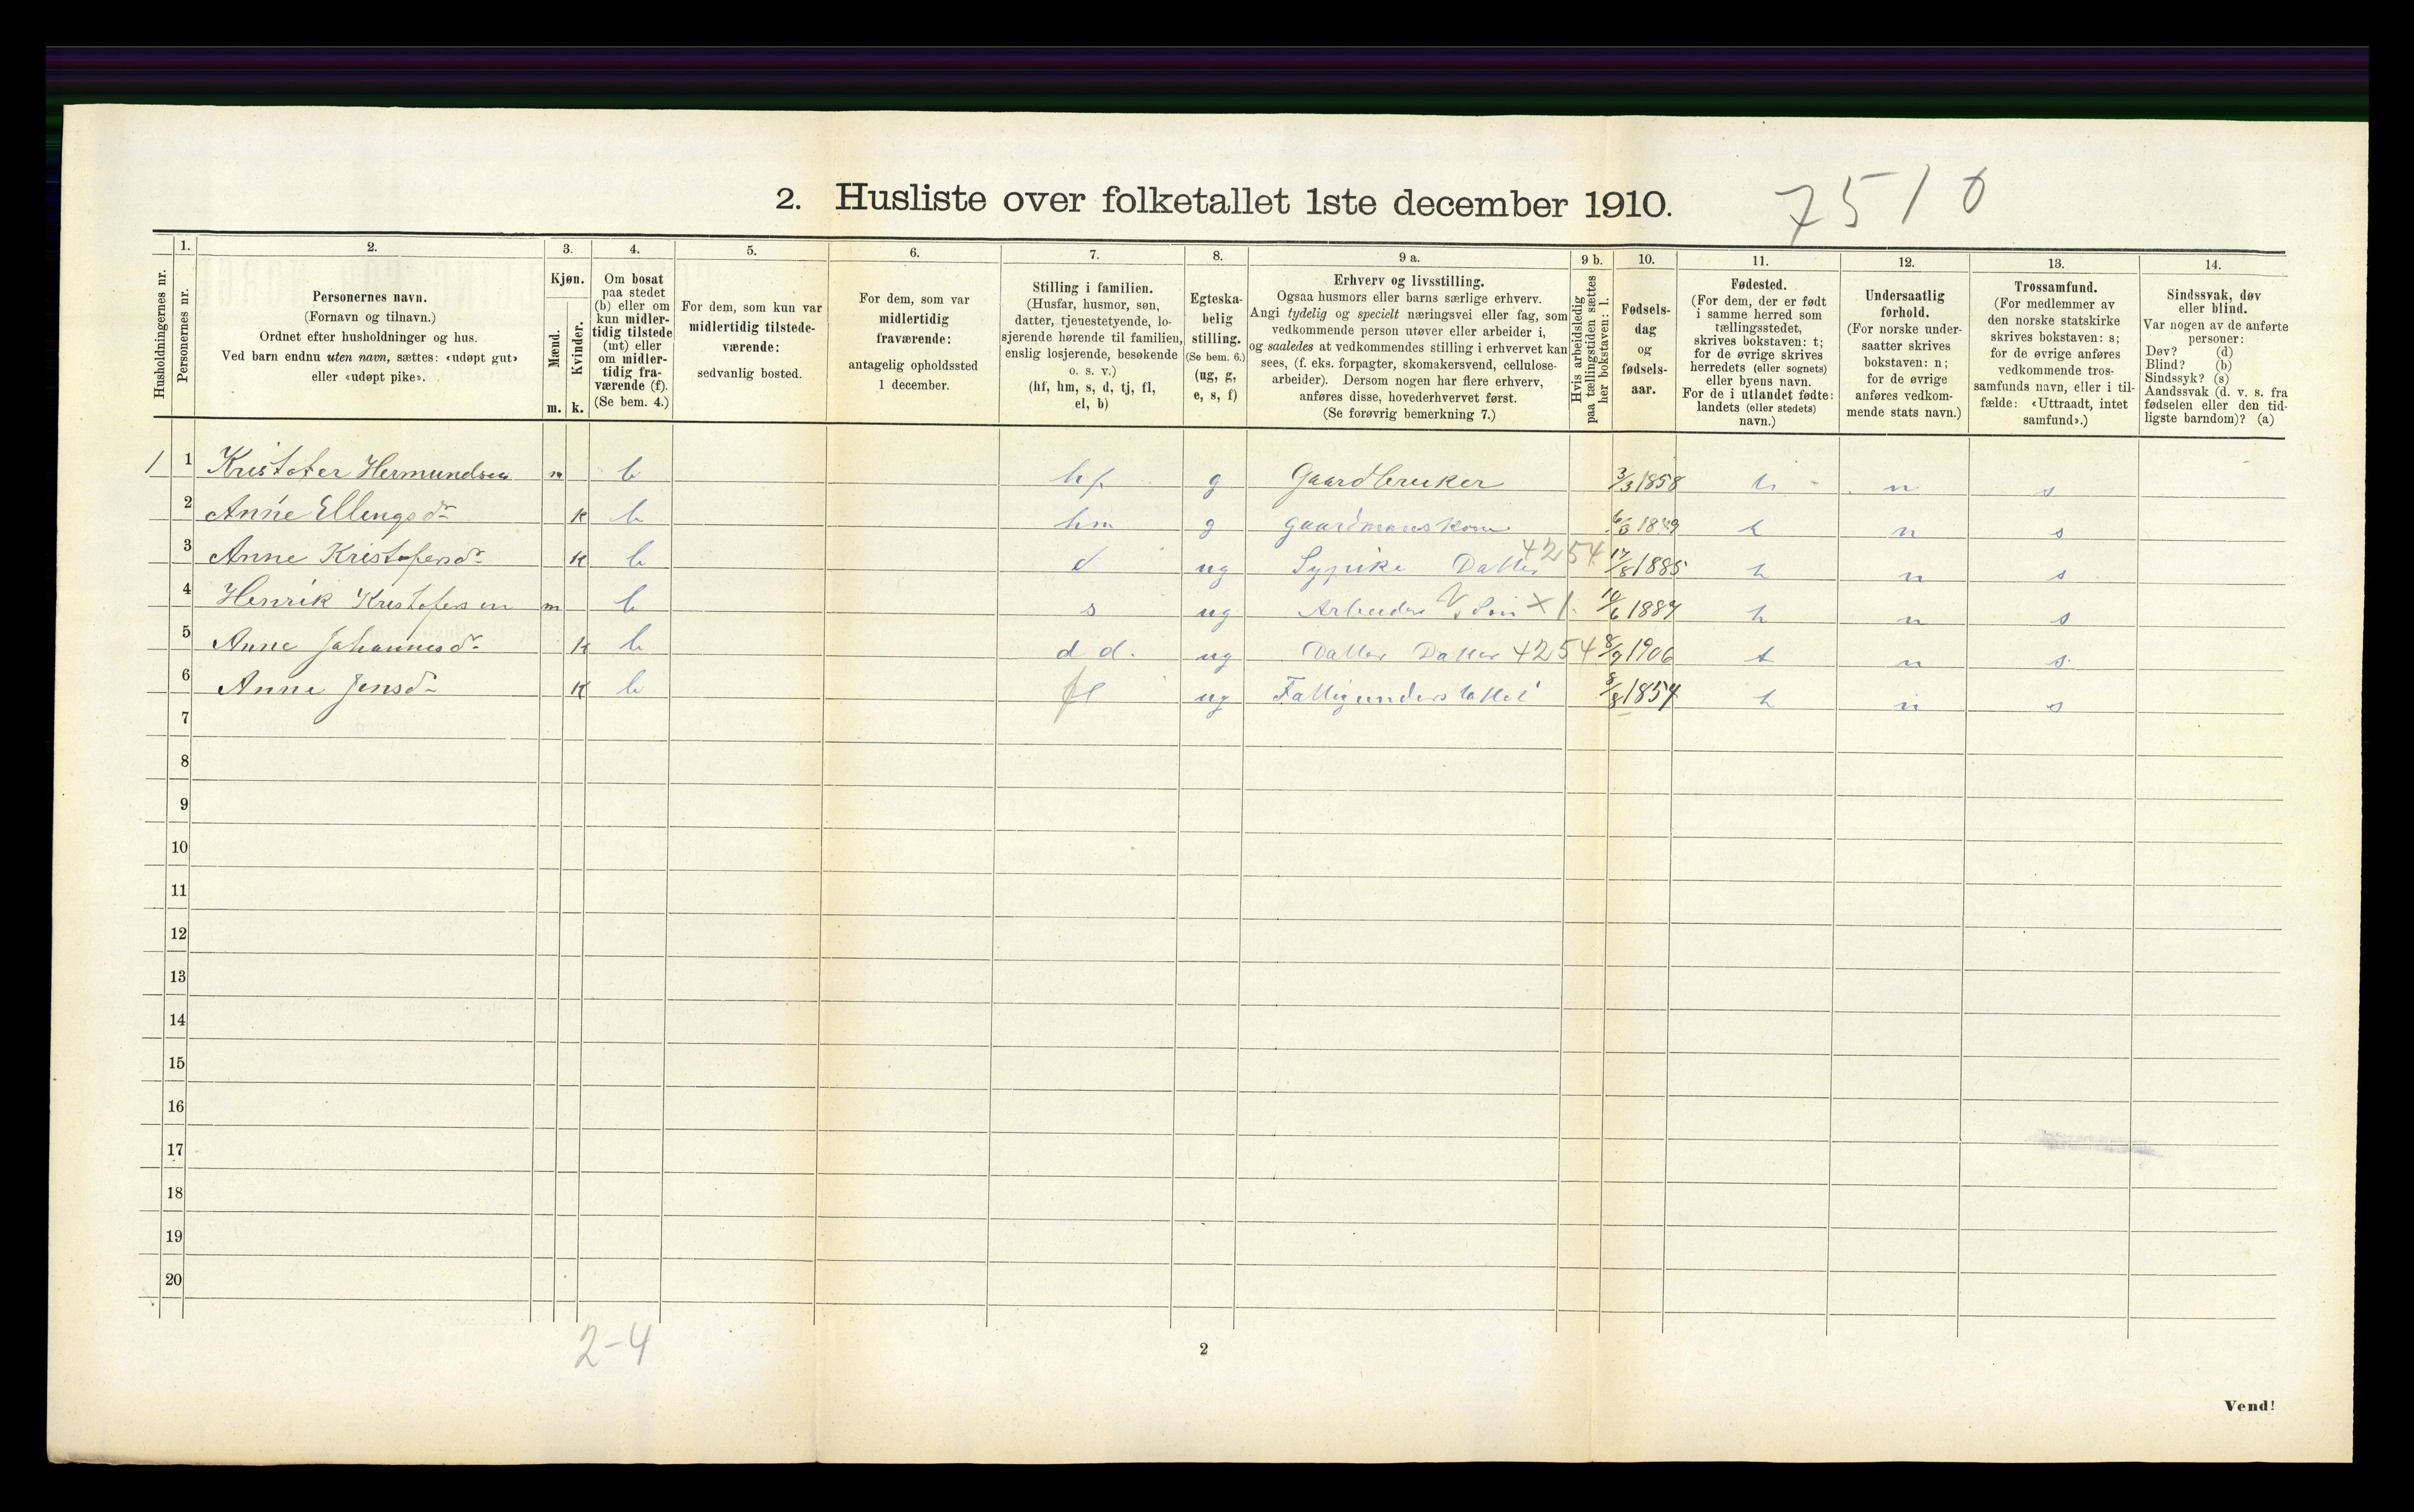 2. Husliste over folketallet 1ste december 1910.
7510
Husholdningernes nr.
1. Personernes nr.
2. Personernes navn. (Fornavn og tilnavn.) Ordnet efter husholdninger og hus. Ved barn endnu uten navn, sættes: «udøpt gut» eller «udøpt pike».
3. Kjøn. Mænd. m. Kvinder. k.
4. Om bosat paa stedet (b) eller om kun midler-tidig tilstede (mt) eller om midler-tidig fra-værende (f). (Se bem. 4.)
5. For dem, som kun var midlertidig tilstede-værende: sedvanlig bosted.
6. For dem, som var midlertidig fraværende: antagelig opholdssted 1 december.
7. Stilling i familien. (Husfar, husmor, søn, datter, tjenestetyende, lo-sjerende hørende til familien, enslig losjerende, besøkende o. s. v.) (hf, hm, s, d, tj, fl, el, b)
8. Egteska-belig stilling. (Se bem. 6.) (ug, g, e, s, f)
9 a. Erhverv og livsstilling. Ogsaa husmors eller barns særlige erhverv. Angi tydelig og specielt næringsvei eller fag, som vedkommende person utøver eller arbeider i, og saaledes at vedkommendes stilling i erhvervet kan sees, (f. eks. forpagter, skomakersvend, cellulose-arbeider). Dersom nogen har flere erhverv, anføres disse, hovederhvervet først. (Se forøvrig bemerkning 7.)
9 b. Hvis arbeidsledig paa tællingstiden sættes her bokstaven: l.
10. Fødsels-dag og fødsels-aar.
11. Fødested. (For dem, der er født i samme herred som tællingsstedet, skrives bokstaven: t; for de øvrige skrives herredets (eller sognets) eller byens navn. For de i utlandet fødte: landets (eller stedets) navn.)
12. Undersaatlig forhold. (For norske under-saatter skrives bokstaven: n; for de øvrige anføres vedkom-mende stats navn.)
13. Trossamfund. (For medlemmer av den norske statskirke skrives bokstaven: s; for de øvrige anføres vedkommende tros-samfunds navn, eller i til-fælde: «Uttraadt, intet samfund».)
14. Sindssvak, døv eller blind. Var nogen av de anførte personer: Døv? (d) Blind? (b) Sindssyk? (s) Aandssvak (d. v. s. fra fødselen eller den tid-ligste barndom)? (a)
1 1 Kristofer Hermundsen m b hf g Gaardbruker 3/3 1858 t n s
2 Anne Ellengsdr k b hm g gaardmanskone 1849 t n s
3 Anne Kristofersdr k b d ug Sypike Datter 4254 17/8 1885 t n s
4 Henrik Kristofersen m b s ug Arbeider V Søn X 1. 10/6 1887 t n s
5 Anne Johannesdr k b d d. ug Datter Datter 4254 8/9 1906 t n s
6 Anne Jensdr k b fl ug Fattigunderstøttet 8/8 1854 t n s
7
8
9
10
11
12
13
14
15
16
17
18
19
20
2-4
2
Vend!